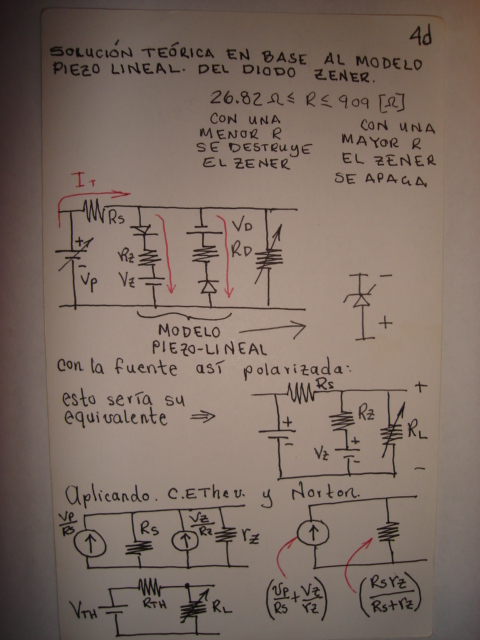 4d
SOLUCIÓN TEÓRICA EN BASE AL MODELO
PIEZO LINEAL. DEL DIODO ZENER.
26.82 Ω ≤ R ≤ 909 [Ω]
CON UNA
MENOR R
SE DESTRUYE
EL ZENER
CON UNA
MAYOR R
EL ZENER
SE APAGA
IT
RS
+
-
Vp
rz
Vz
VD
RD
-
+
MODELO
PIEZO-LINEAL
con la fuente así polarizada:
esto sería su
equivalente ⇒
RS
+
-
RZ
VZ
+
-
RL
+
-
Aplicando. C.E Thev. y Norton.
Vp/Rs
Rs
Vz/Rz
rz
(Vp/Rs + Vz/rz)
(Rs rz/Rs+rz)
VTH
RTH
RL